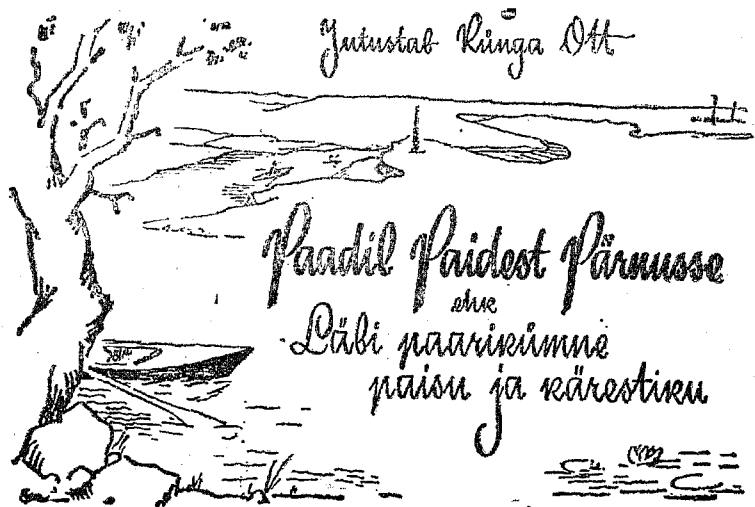 Jutustab Künga Ott
Paadil Paidest Pärnusse
ehk
Läbi paarikümne
paisu ja kärestiku